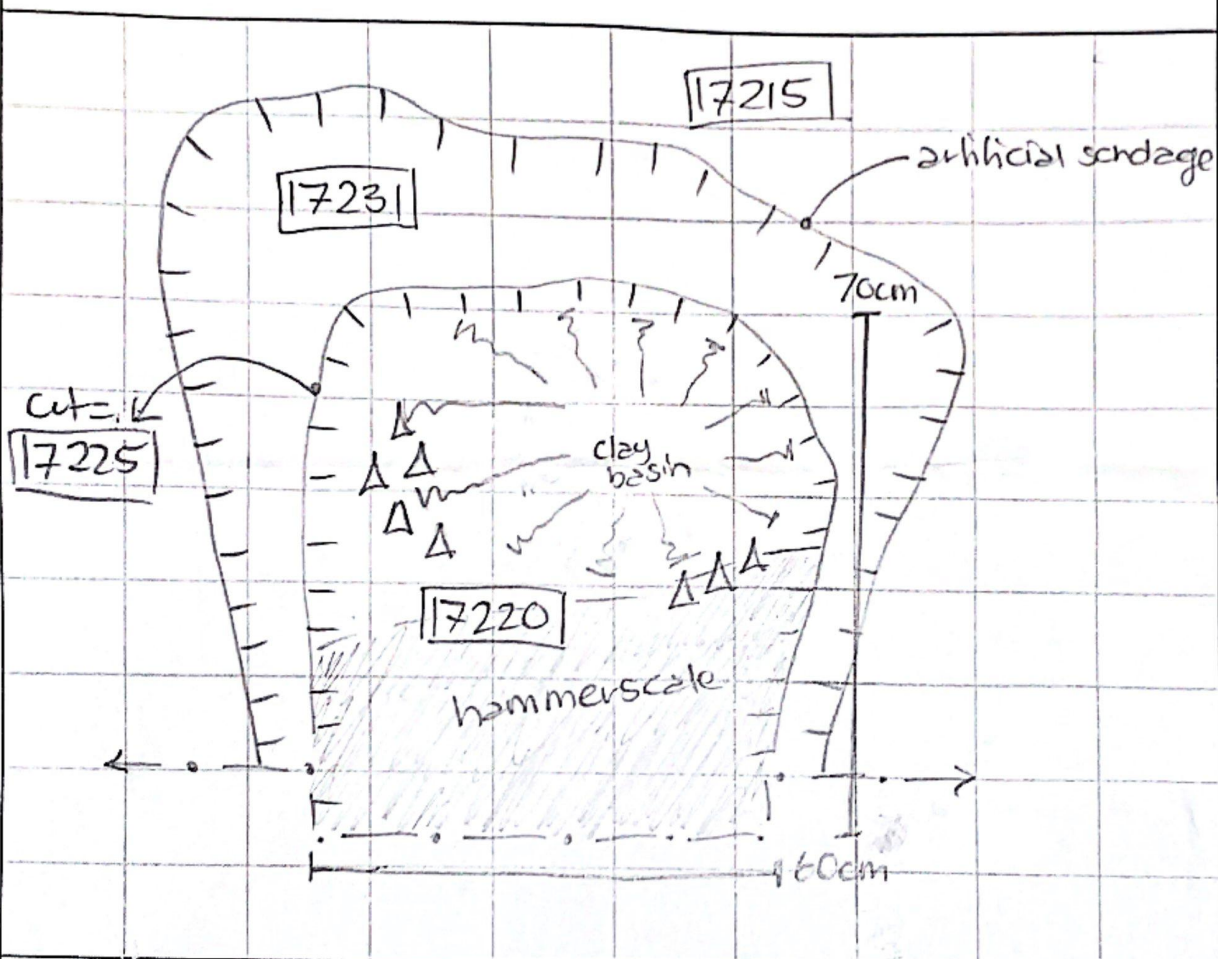 17215
artificial sondage
17231
70cm
cut=
17225
clay
basin
17220
hammerscale
60cm